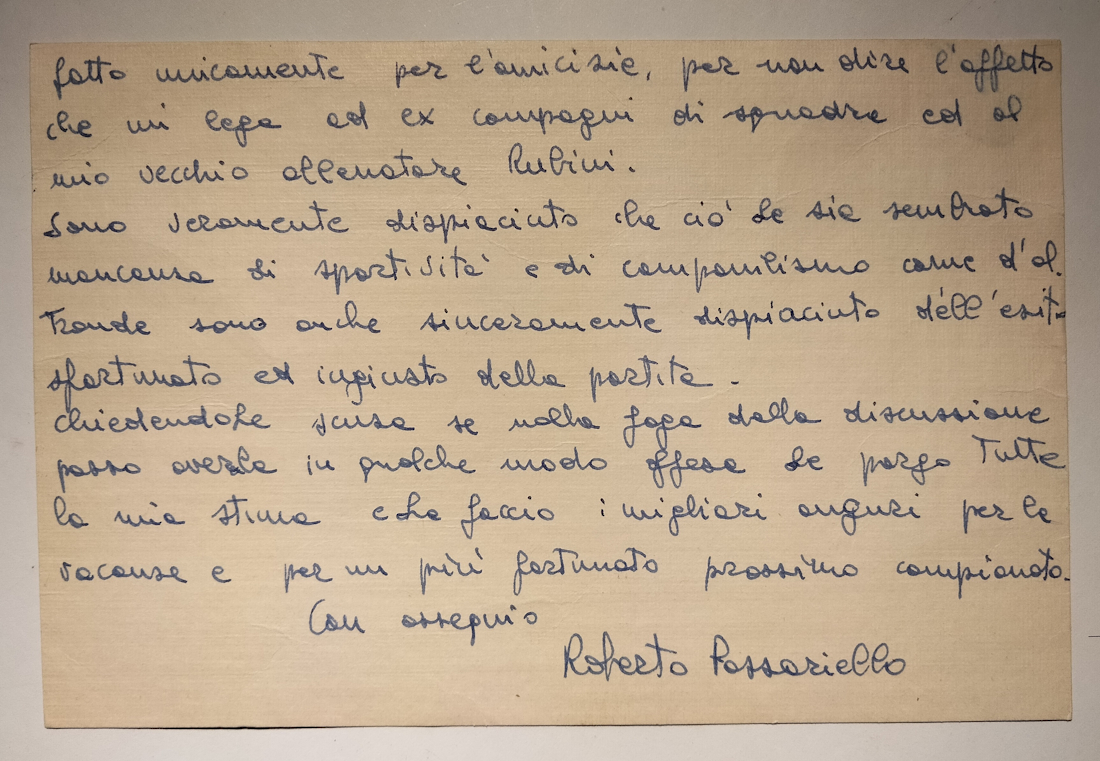 fatto unicamente per l'amicizia, per non dire l'affetto
che mi lega ad ex compagni di squadra ed al
mio vecchio allenatore Rubini.
Sono veramente dispiaciuto che ciò Le sia sembrato
mancanza di sportività e di campanilismo come d'al
tronde sono anche sinceramente dispiaciuto dell'esito
sfortunato ed ingiusto della partita.
Chiedendole scusa se nella foga della discussione
posso averla in qualche modo offesa Le porgo tutta
la mia stima e Le faccio i migliori auguri per le
vacanze e per un più fortunato prossimo campionato.
Con ossequio
Roberto Passariello